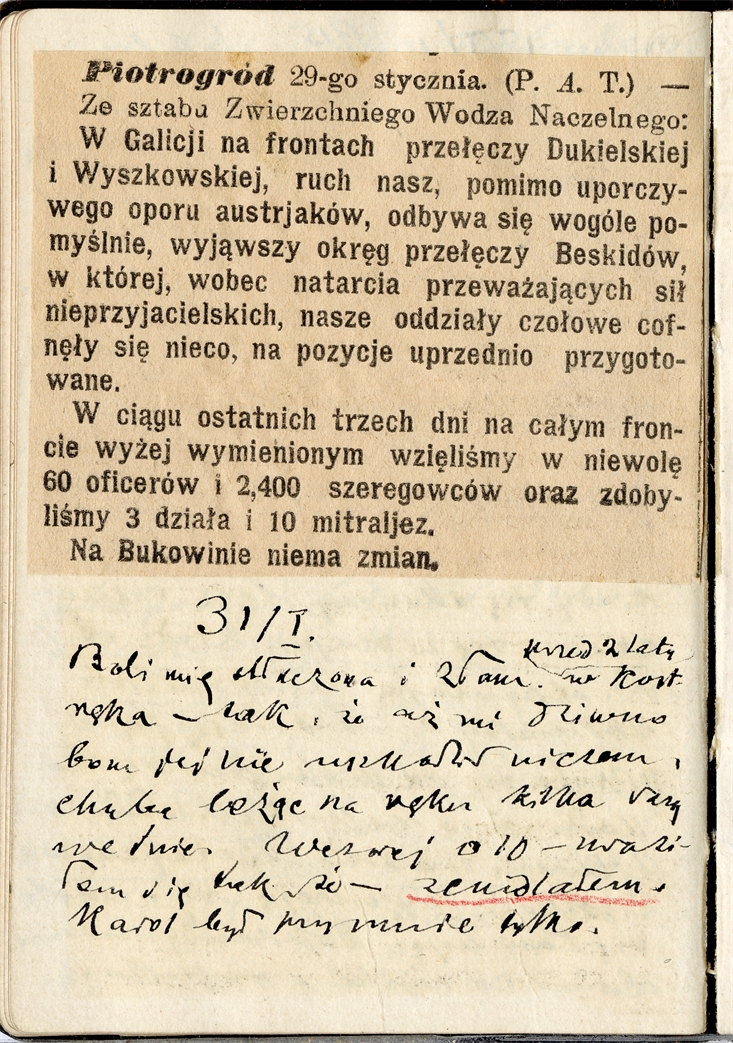 Piotrogród 29-go stycznia. (P. A. T.) —
Ze sztabu Zwierzchniego Wodza Naczelnego:
W Galicji na frontach przełęczy Dukielskiej
i Wyszkowskiej, ruch nasz, pomimo uporczy-
wego oporu austrjaków, odbywa się wogóle po-
myślnie, wyjąwszy okręg przełęczy Beskidów,
w której, wobec natarcia przeważających sił
nieprzyjacielskich, nasze oddziały czołowe cof-
nęły się nieco, na pozycje uprzednio przygoto-
wane.
W ciągu ostatnich trzech dni na całym fron-
cie wyżej wymienionym wzięliśmy w niewolę
60 oficerów i 2,400 szeregowców oraz zdoby-
liśmy 3 działa i 10 mitraljez.
Na Bukowinie niema zmian.
31/I.
przed 2 laty
Boli mię stłuczona i złam. w Kost.
ręka – tak, że aż mi dziwno
bom jej nie uszkodził niczem,
chyba leżąc na ręku kilka razy
we dnie. Wczoraj o 10 – urazi-
łem się tak że – zemdlałem.
Karol był przy mnie tylko.